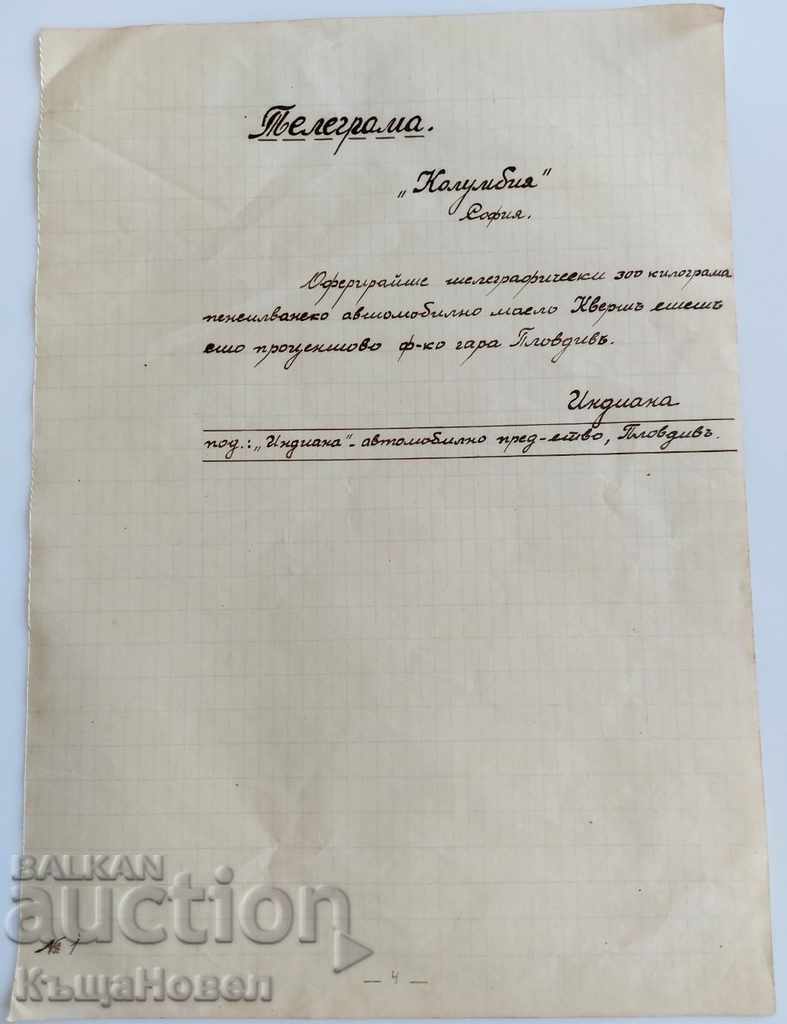 Телеграма.
„Колумбия"
София.
Оферирайте телеграфически 300 килограма
пенсилванско автомобилно масло Квертъ стетъ
сто процентово ф-ко гара Пловдивъ.
Индиана
под.: „Индиана"- автомобилно пред-ство, Пловдивъ.
BALKAN
auction
№ 1
КъщаНовел
— 4 —